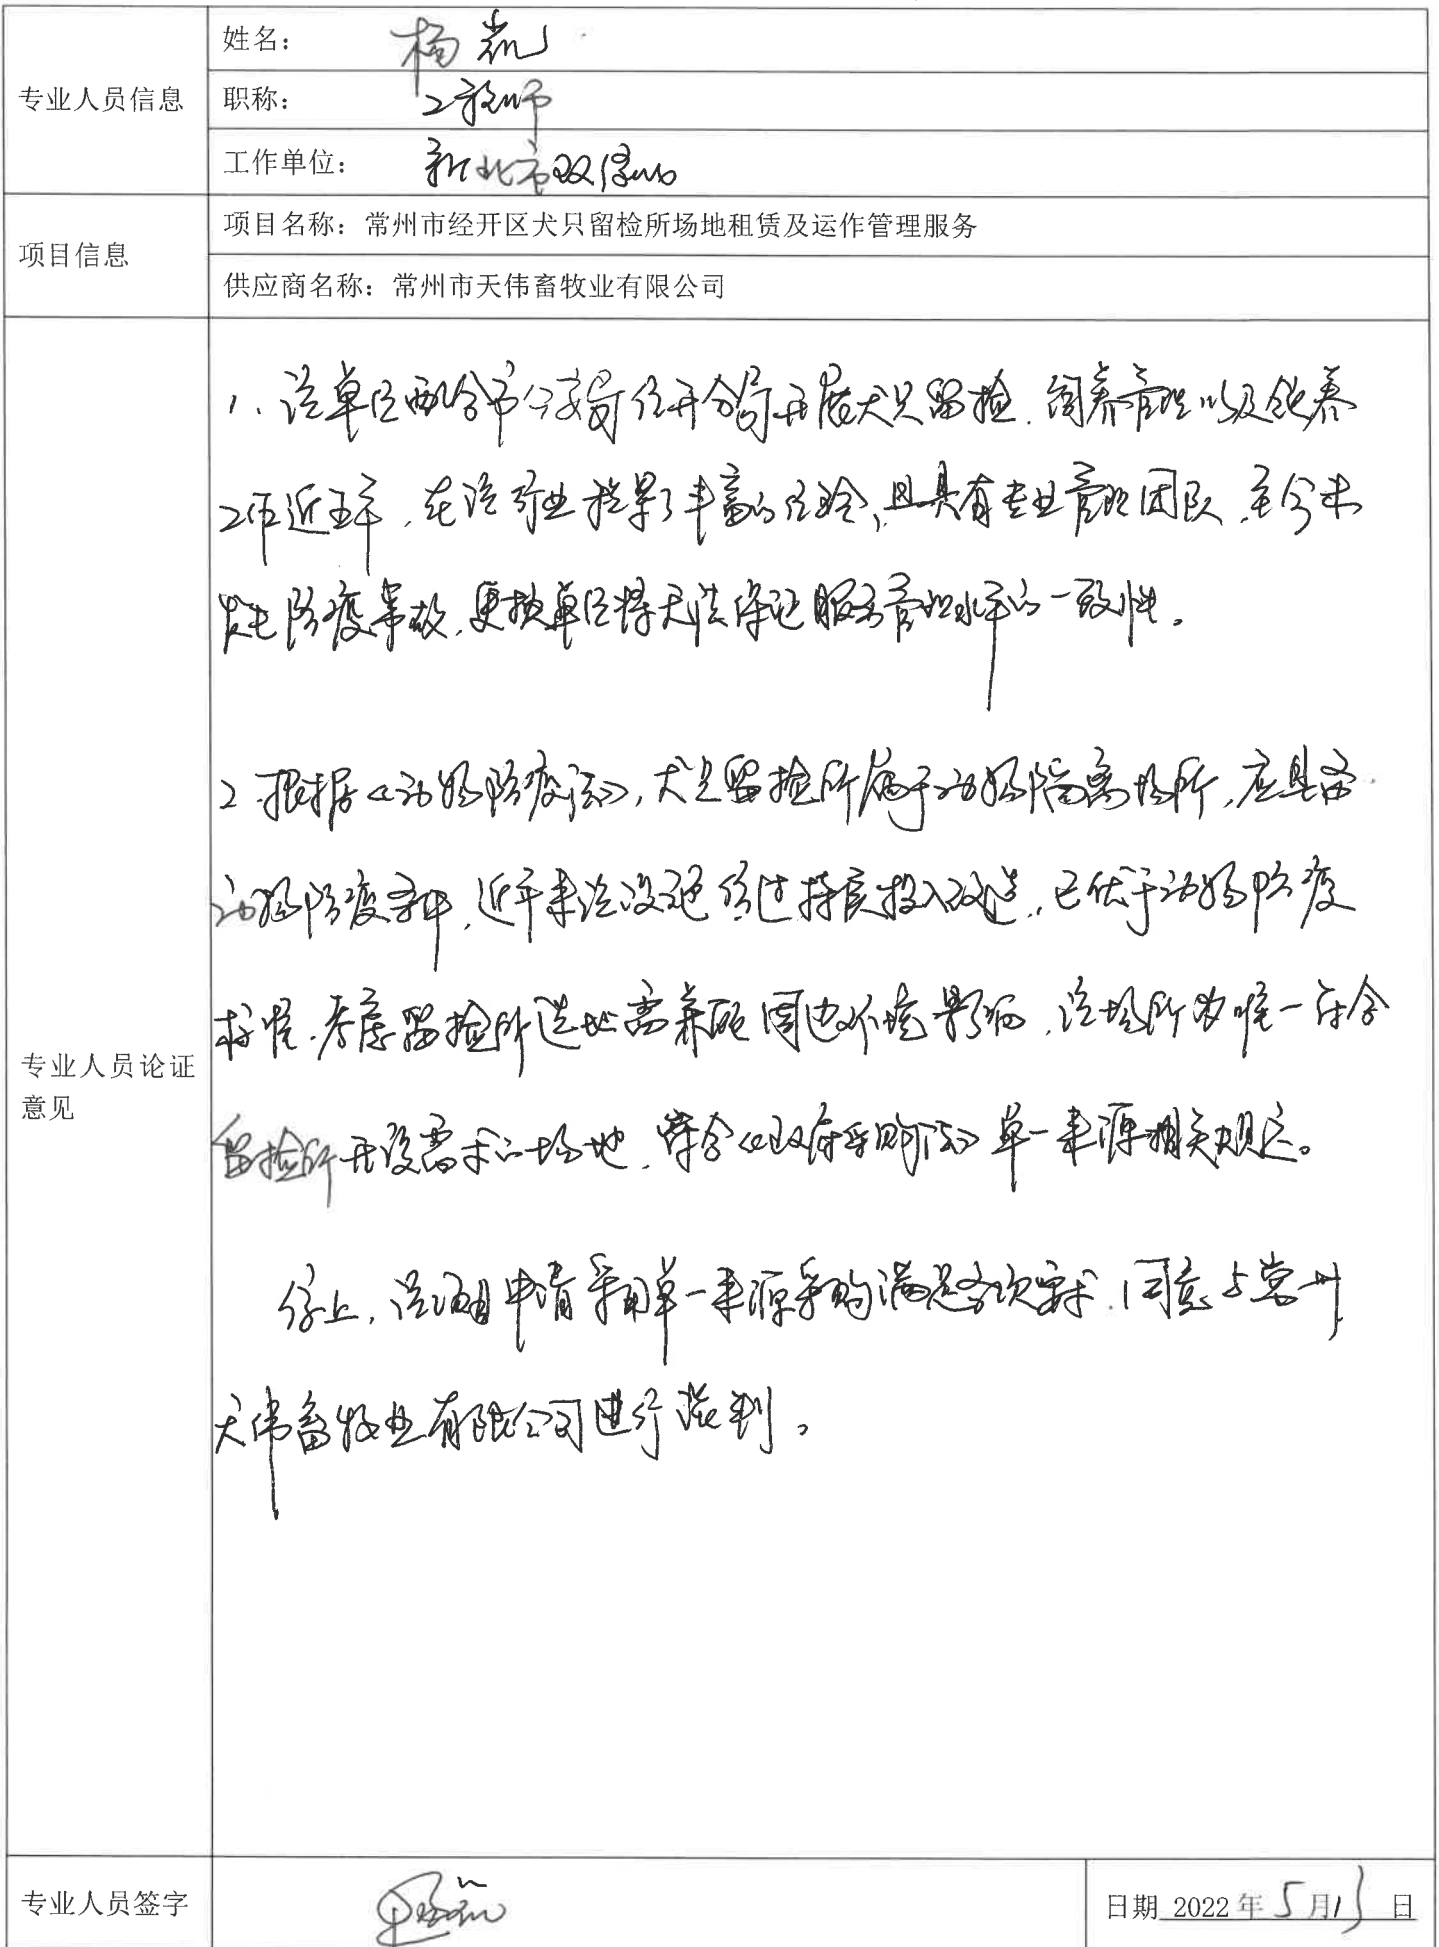 专业人员信息
姓名：杨凯
职称：工程师
工作单位：新北市政绿化
项目信息
项目名称：常州市经开区犬只留检所场地租赁及运作管理服务
供应商名称：常州市天伟畜牧业有限公司
专业人员论证
意见
1、该单位配合市公安局经开分局开展犬只留检、饲养管理以及领养
工作近五年，在该行业积累了丰富的经验，且具有专业管理团队，至今未
发生防疫事故，更换单位将无法保证服务管理水平的一致性。
2、根据《动物防疫法》，犬只留检所属于动物隔离场所，应具备
动物防疫条件，近年来该设施经过持续投入改造，已优于动物防疫
标准，考虑留检所选地需兼顾周边环境影响，该场所为唯一符合
留检所开设需求的场地，符合《政府采购法》单一来源相关规定。
综上，该项目申请采用单一来源采购满足各项要求，同意与常州
天伟畜牧业有限公司进行谈判。
专业人员签字
日期 2022年5月13日